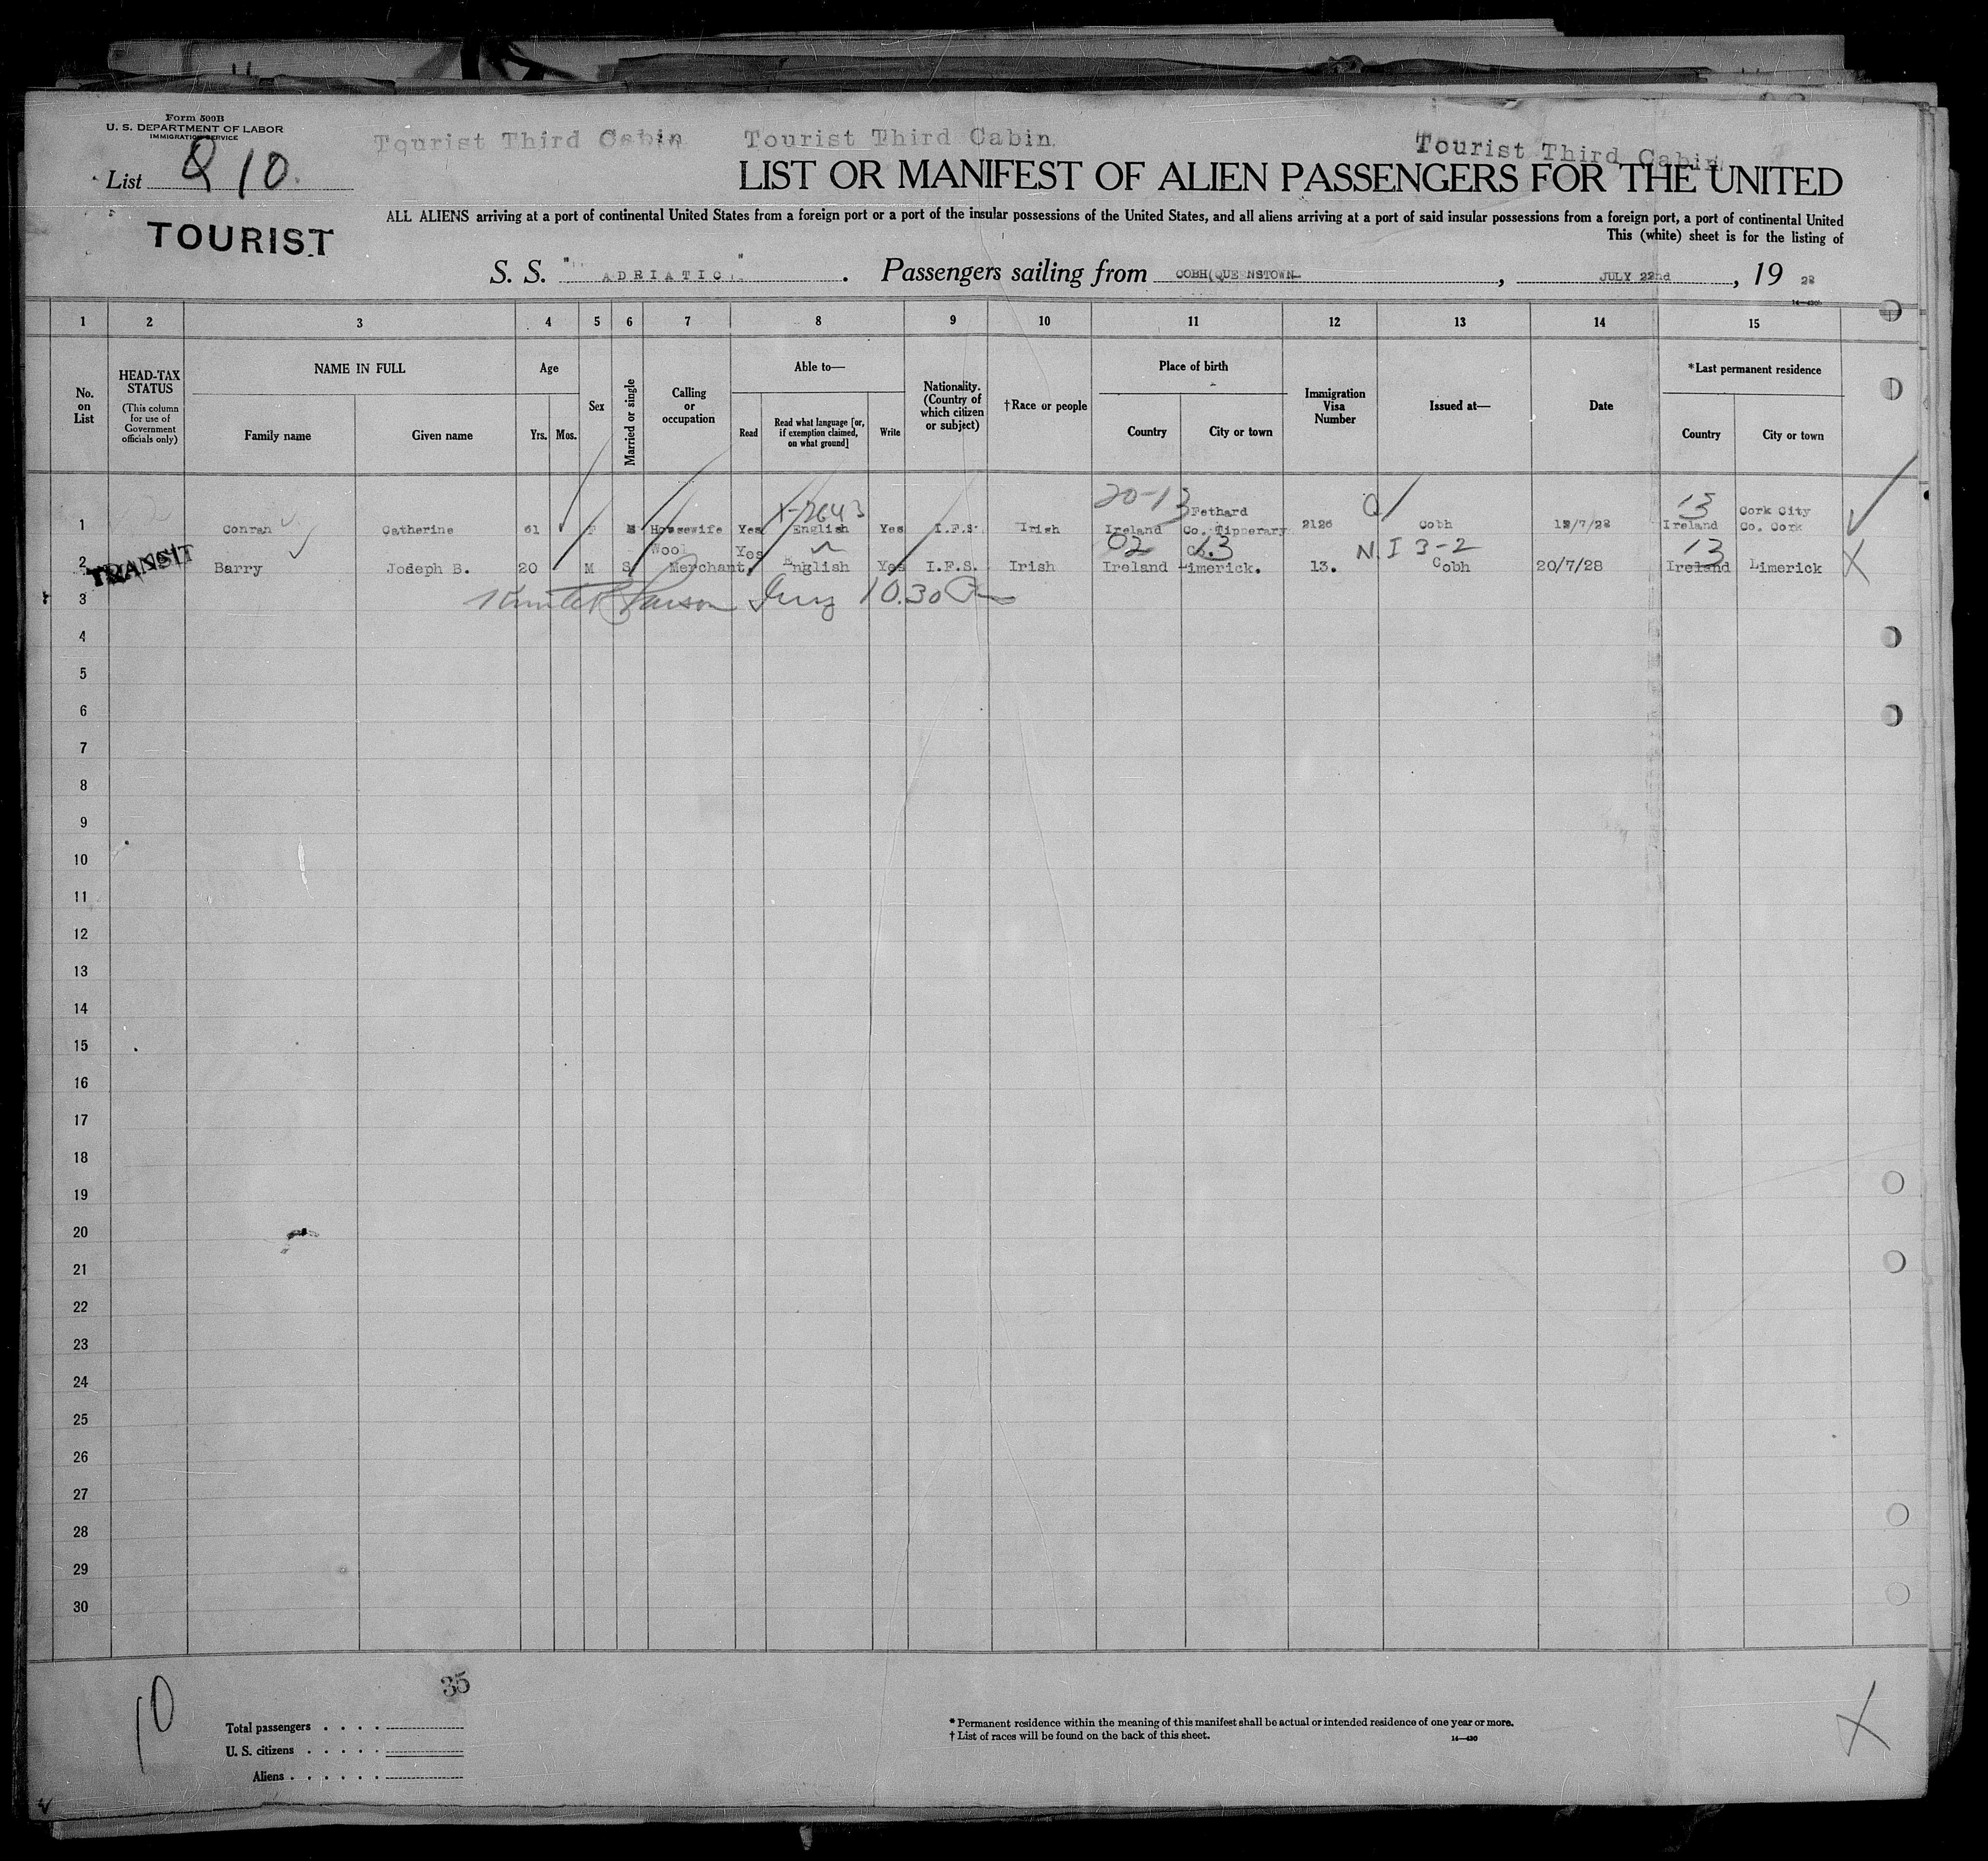 Form 500B
U. S. DEPARTMENT OF LABOR
IMMIGRATION SERVICE
Tourist Third Cabin Tourist Third Cabin Tourist Third Cabin
List 10.
LIST OR MANIFEST OF ALIEN PASSENGERS FOR THE UNITED
TOURIST
ALL ALIENS arriving at a port of continental United States from a foreign port or a port of the insular possessions of the United States, and all aliens arriving at a port of said insular possessions from a foreign port, a port of continental United
This (white) sheet is for the listing of
S. S. "ADRIATIC". Passengers sailing from COBH(QUEENSTOWN , JULY 22nd , 19 28
14—430
1 2 3 4 5 6 7 8 9 10 11 12 13 14 15
No. on List
HEAD-TAX STATUS
(This column for use of Government officials only)
NAME IN FULL
Family name Given name
Age
Yrs. Mos.
Sex
Married or single
Calling or occupation
Able to—
Read Read what language [or, if exemption claimed, on what ground] Write
Nationality. (Country of which citizen or subject)
†Race or people
Place of birth
Country City or town
Immigration Visa Number
Issued at—
Date
*Last permanent residence
Country City or town
20-13 13
X-2643 Fethard Cork City
1 Conran Catherine 61 F M Housewife Yes English Yes I.F.S. Irish Ireland Co. Tipperary 2126 Cobh /7/28 Ireland Co. Cork
TRANSIT Wool Yes 02 Co. 13 N.I 3-2 13
2 Barry Joseph B. 20 M S Merchant. English Yes I.F.S. Irish Ireland Limerick. 13. Cobh 20/7/28 Ireland Limerick
3 10.30
4
5
6
7
8
9
10
11
12
13
14
15
16
17
18
19
20
21
22
23
24
25
26
27
28
29
30
10
35
Total passengers . . . .
U. S. citizens . . . . .
Aliens . . . . . .
* Permanent residence within the meaning of this manifest shall be actual or intended residence of one year or more.
† List of races will be found on the back of this sheet.
14—430
X